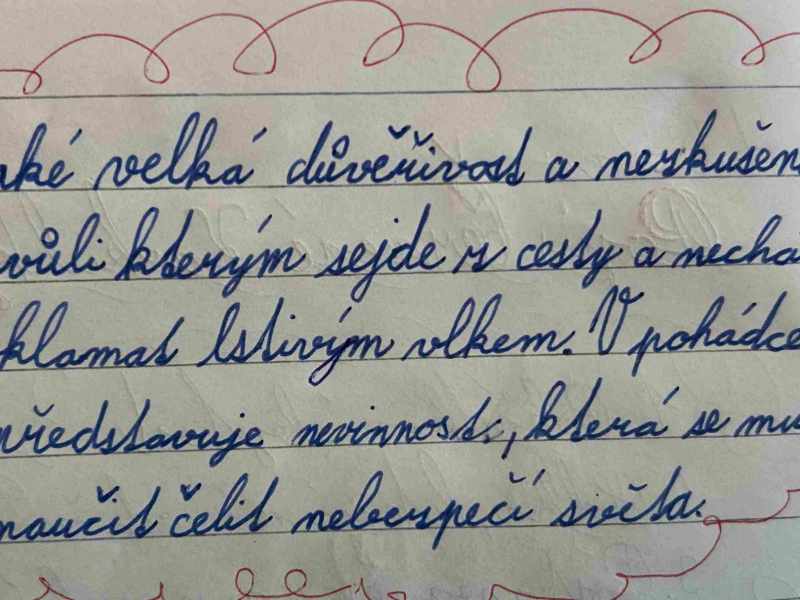 aké velká důvěřivost a nezkušen
vůli kterým sejde z cesty a nechá
klamat lstivým vlkem. V pohádce
představuje nevinnost, která se mu
naučit čelit nebezpečí světa.